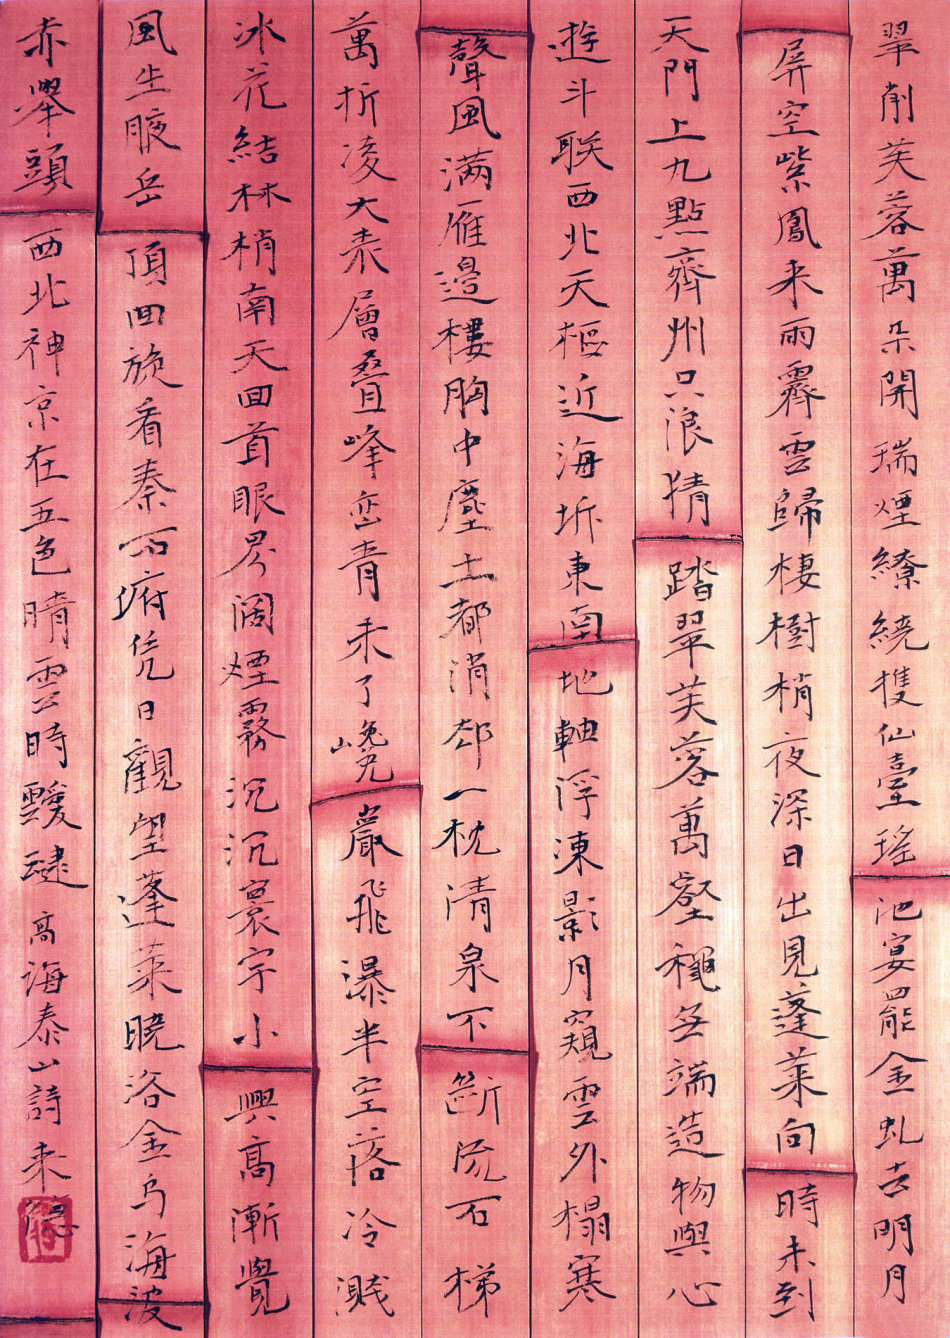 翠削芙蓉萬朵開瑞煙繚繞擭仙臺瑤池宴罷金虬去明月
屏空紫鳳来雨霽雲歸棲樹梢夜深日出見蓬萊向時未到
天門上九點齊州只浪猜踏翠芙蓉萬壑穐無端造物與心
遊斗联西北天樞近海坼東南地軸浮凍影月窺雲外榻寒
聲風满雁邊樓胸中塵土都消却一枕清泉不斷流石梯
萬折凌大表層叠峰峦青未了巉巖飛瀑半空落冷濺
冰花結林梢南天回首眼界阔煙霧沉沉寰宇小興高漸覺
風生腋岳頂回旋看秦石府凭日觀望蓬萊曉浴金乌海波
赤舉頭西北神京在五色晴雲時靉靆高海泰山詩来德